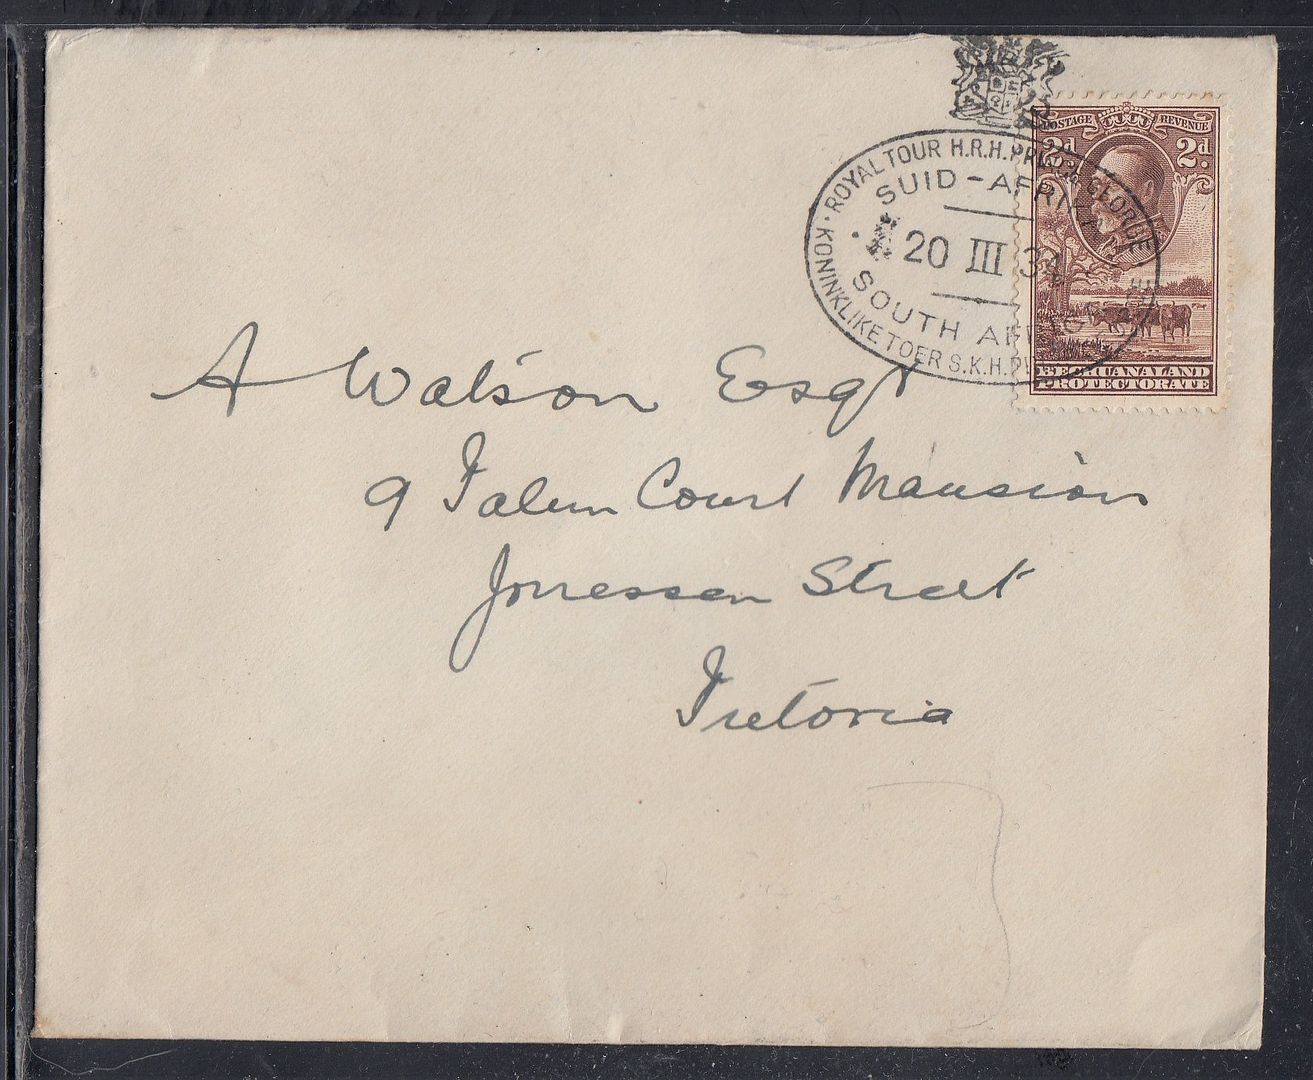 ROYAL TOUR H.R.H. PRINCE GEORGE
SUID-AFRIKA
20 III 34
SOUTH AFRICA
KONINKLIKE TOER S.K.H.
POSTAGE REVENUE
2d. 2d.
BECHUANALAND
PROTECTORATE
A Watson Esqr
9 Court Mansion
Street
Pretoria